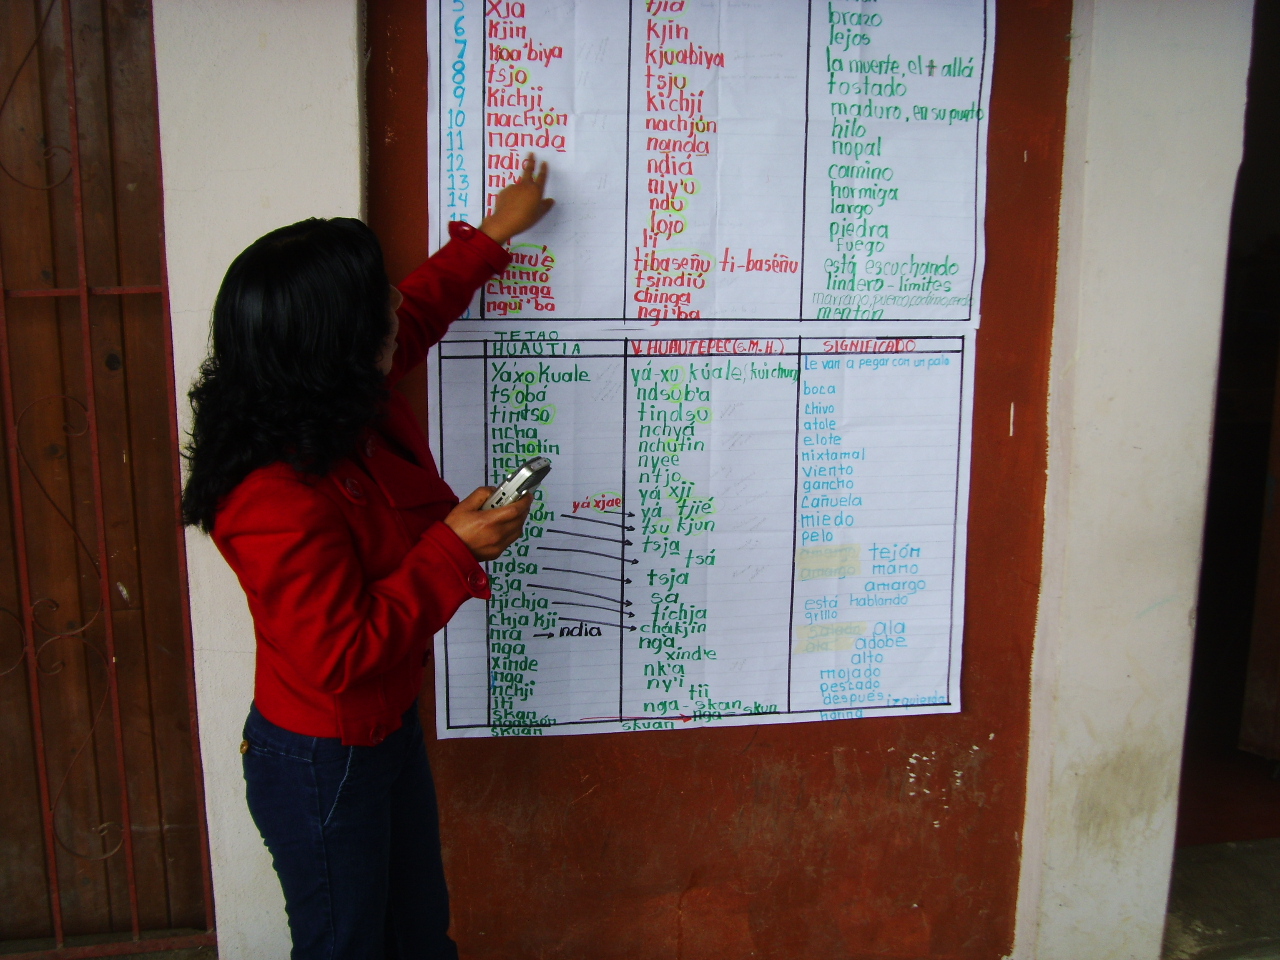 5 xja tjia brazo
6 kjin kjin lejos
7 koa'biya kjuabiya la muerte, el + allá
8 tsjo tsju tostado
9 kichji kichjí maduro, en su punto
10 nachjón nachjún hilo
11 nanda nanda nopal
12 ndiá camino
13 niy'u hormiga
14 ndu largo
lojo piedra
li fuego
tibaseñu ti-baséñu está escuchando
chinró tsindiú lindero-límites
chinga chinga
ngui'ba ngi'ba mentón
TEJAO
HUAUTIA V. HUAUTEPEC (S.M.H.) SIGNIFICADO
Yáxo Kuale yá-xu kúale, Le van a pegar con un palo
ts'oba ndsob'a boca
tintso tindsu chivo
ncha nchyá atole
nchotin nchutin elote
nyee nixtamal
ntjo viento
yá xji gancho
yá xjae yá tjié cañuela
tsu kjun miedo
tsja pelo
tsá tejón
ndsa tsja mano
sja sa amargo
tjichja tíchja está hablando
chja kji chákjin grillo
nra → ndia nga ala
nga xind'e adobe
xinde nk'a alto
nga ny'i mojado
nchji tii pescado
jti nga-skan después izquierda
skan nga-skun
skuan skuan harina